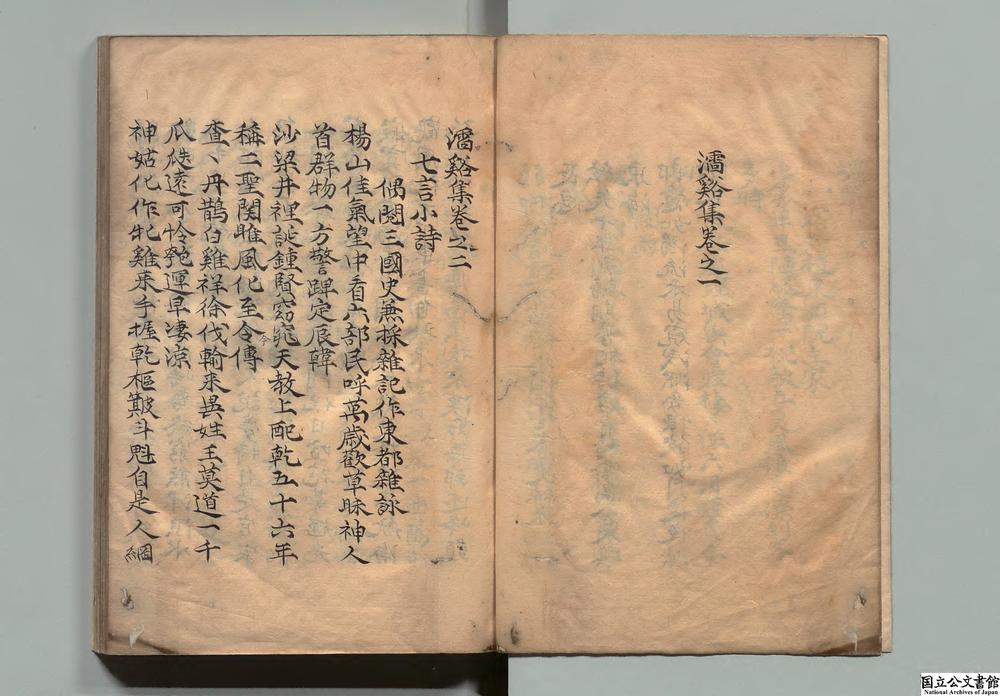 濡谿集卷之一
濡谿集卷之二
七言小詩
偶閱三國史兼採雜記作東都雜詠
楊山佳氣望中看六部民呼萬歲歡草昧神人
首群物一方警蹕定辰韓
沙梁井裡誕鍾賢窈窕天敎上配乾五十六年
稱二聖関雎風化至令傳
今
査丶丹鵲白雞祥徐伐輸来異姓王莫道一千
瓜瓞遠可怜匏運早凄涼
神姑化作牝雞来手握乾樞歎斗魁自是人綱
国立公文書館
National Archives of Japan